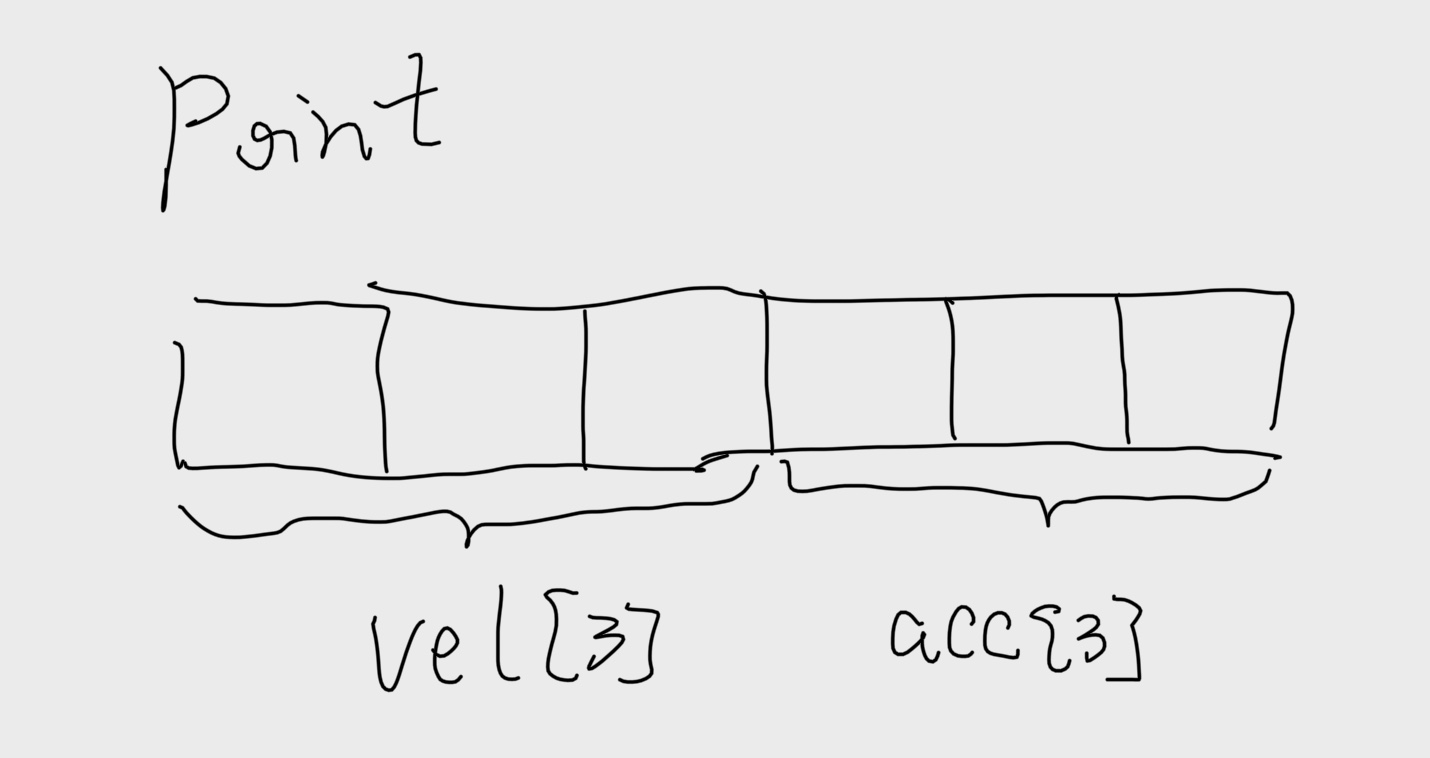 Point
vel[3]
acc[3]